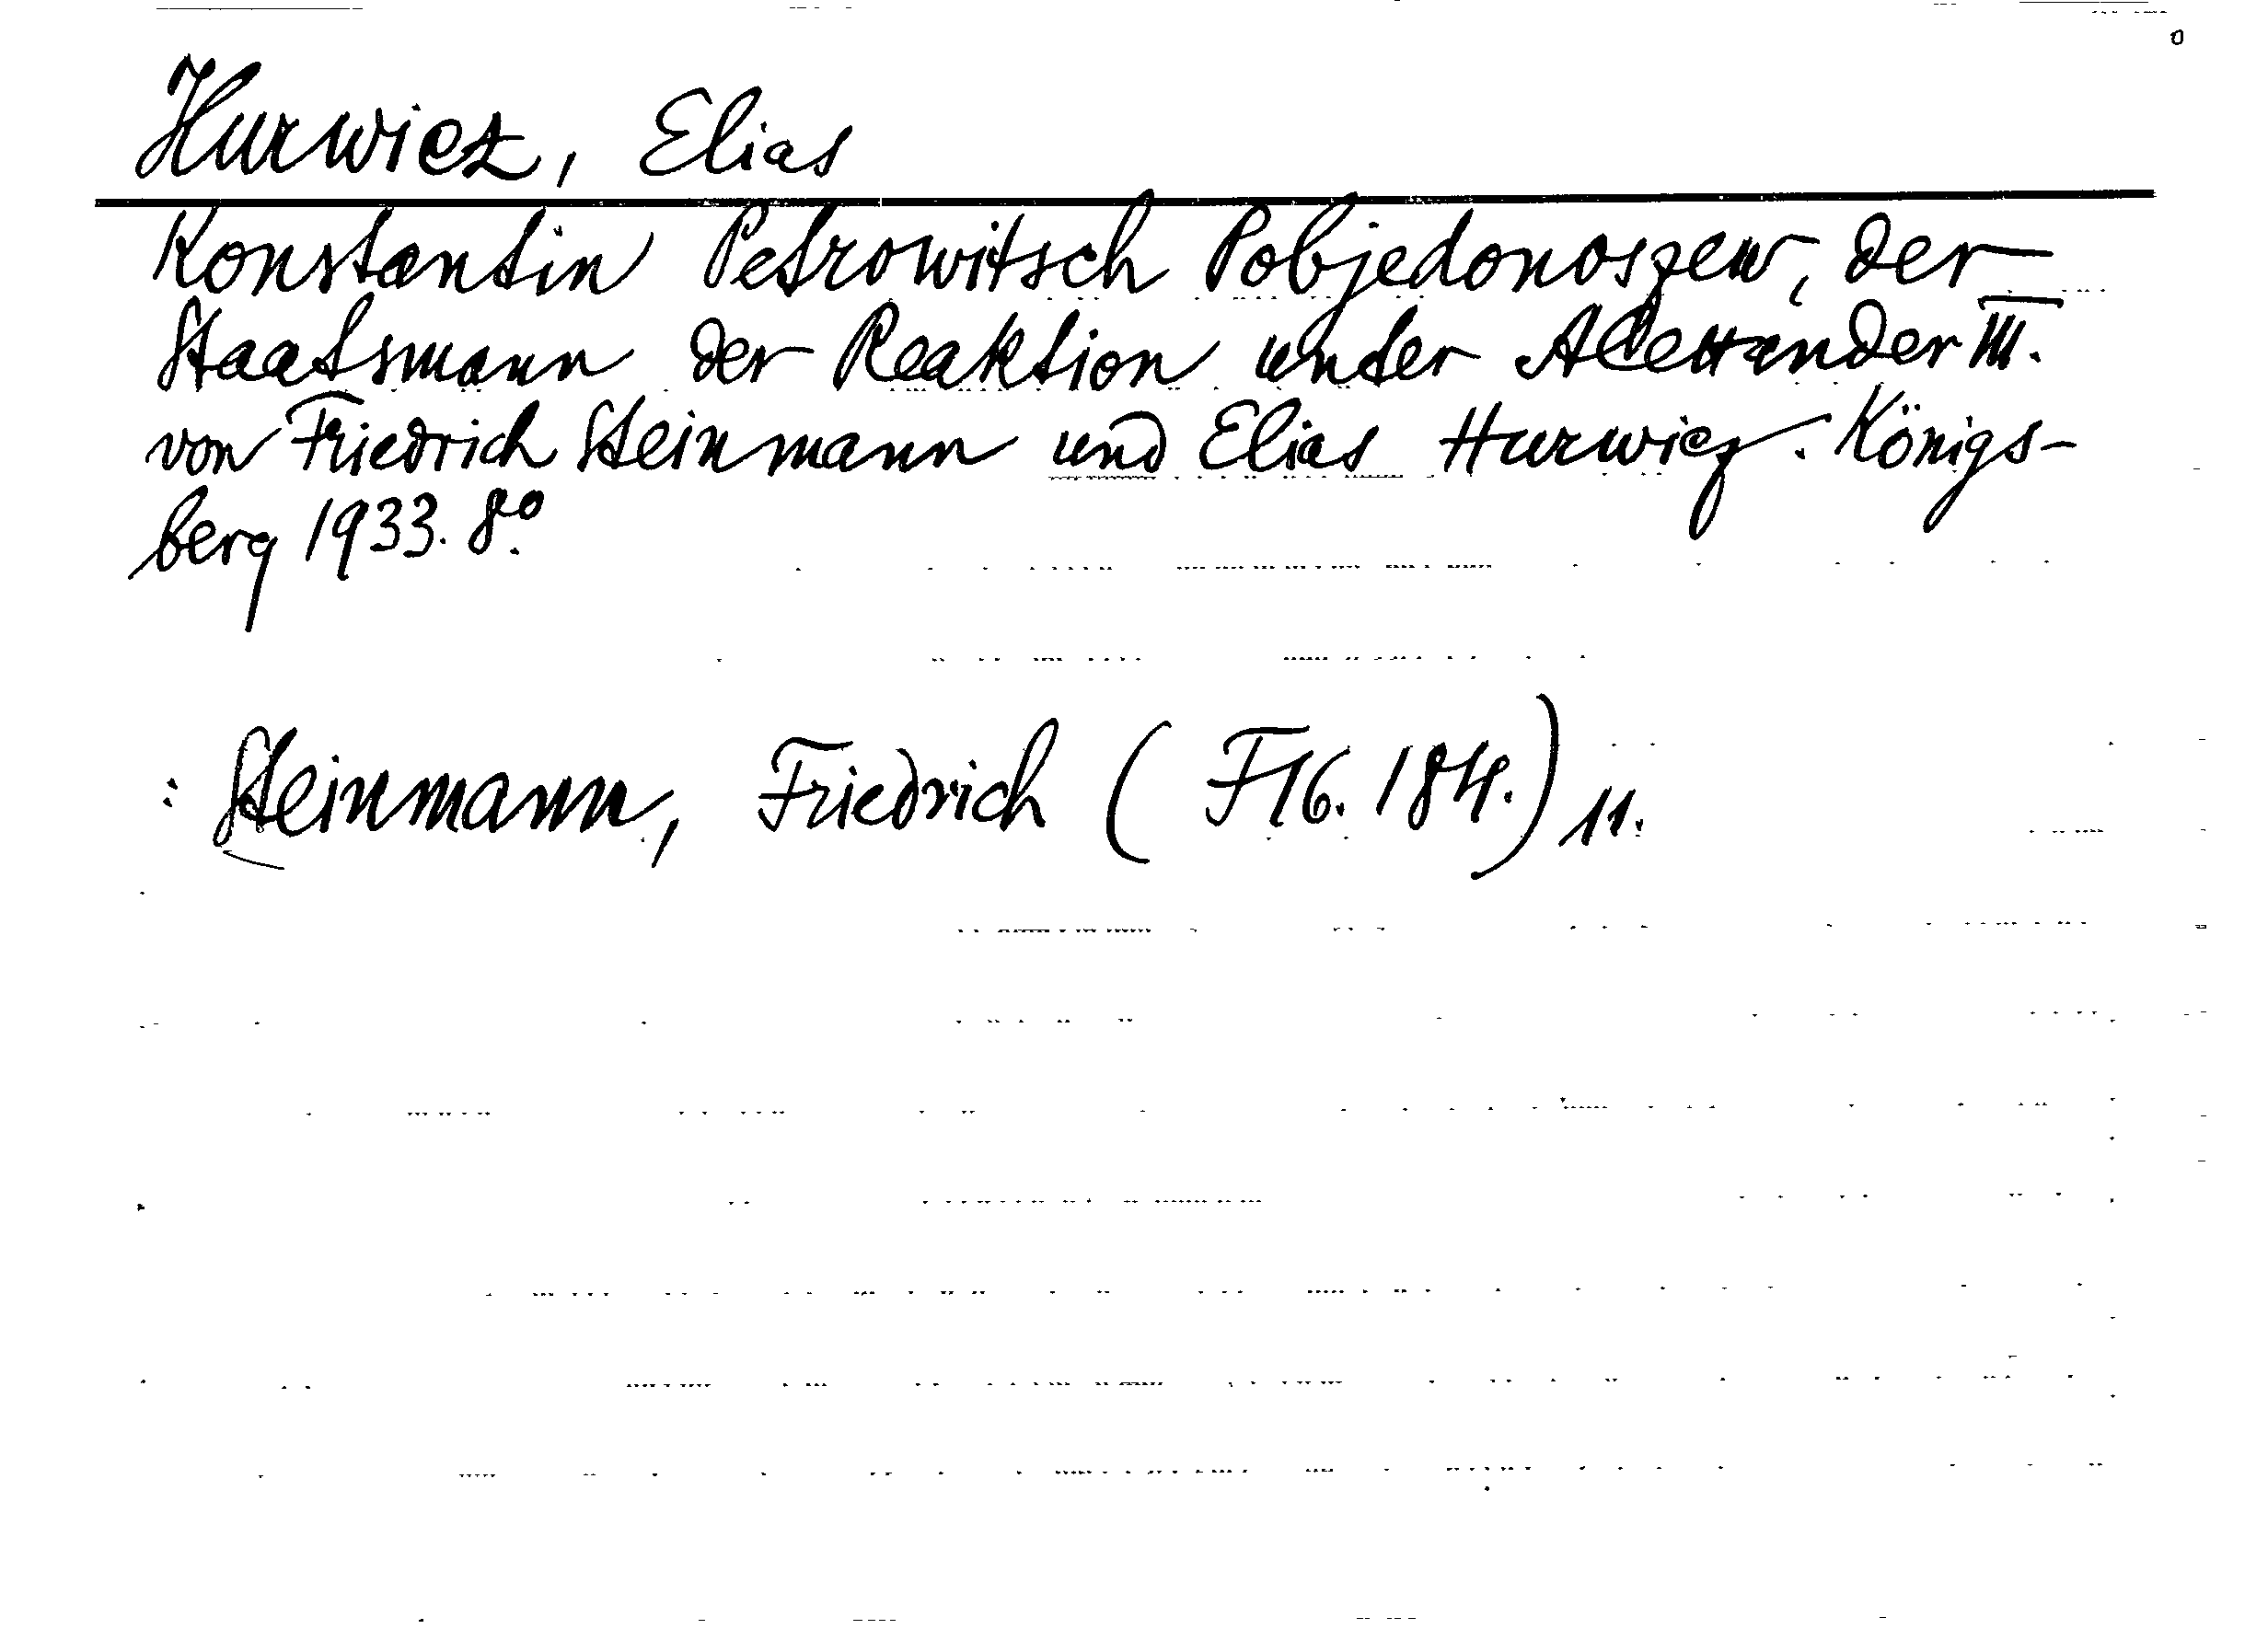 Hurwicz, Elias
Konstantin Petrowitsch Pobjedonoszew, der
Staatsmann der Reaktion unter Alexander III.
von Friedrich Steinmann und Elias Hurwicz. Königs-
berg 1933. 8°.
: Steinmann, Friedrich (F16. 184.) 11.